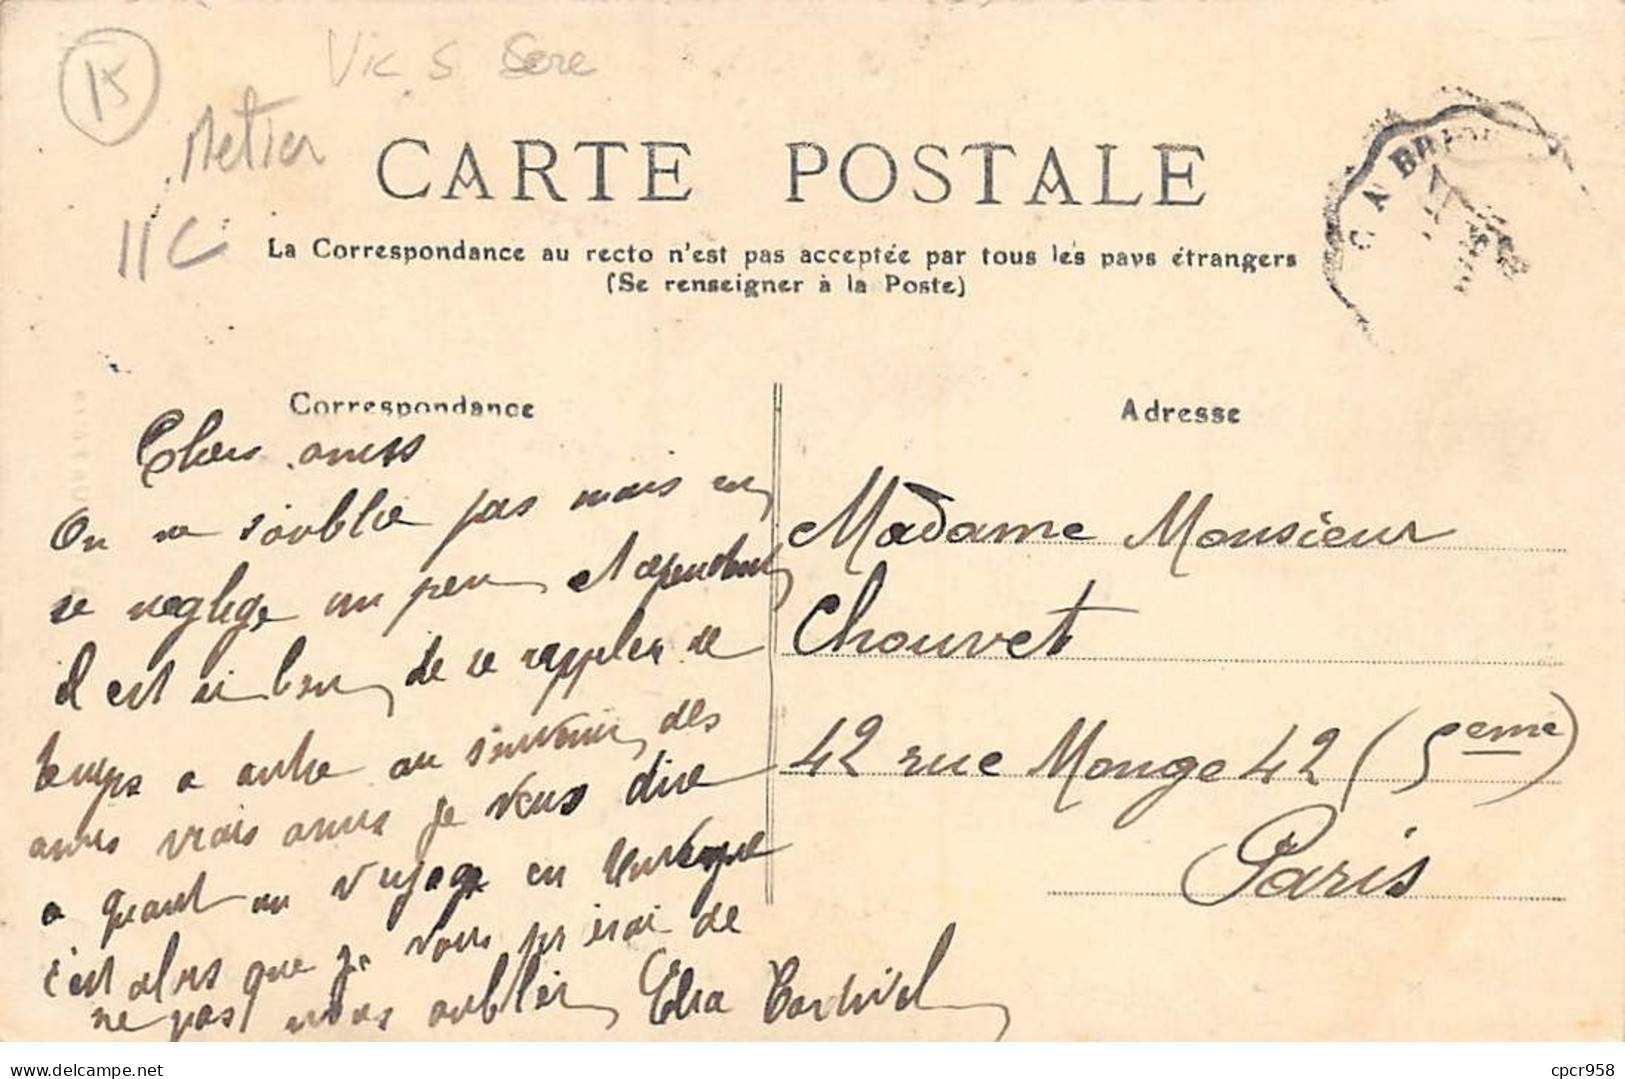 15
Vic S Cere
Metier
11C
CARTE POSTALE
La Correspondance au recto n'est pas acceptée par tous les pays étrangers
(Se renseigner à la Poste)
Correspondance
Chers amis
On ne s'oublie pas mais on
se neglige un peu et cependant
il est si bon de se rappeler de
temps a autre au souvenir des
amis vrais amis je vous dire
a quand un voyage en
c'est alors que je vous prierai de
ne pas nous oublier Elsa
Adresse
Madame Monsieur
Chouvet
42 rue Monge 42 (5eme)
Paris
cpcr958